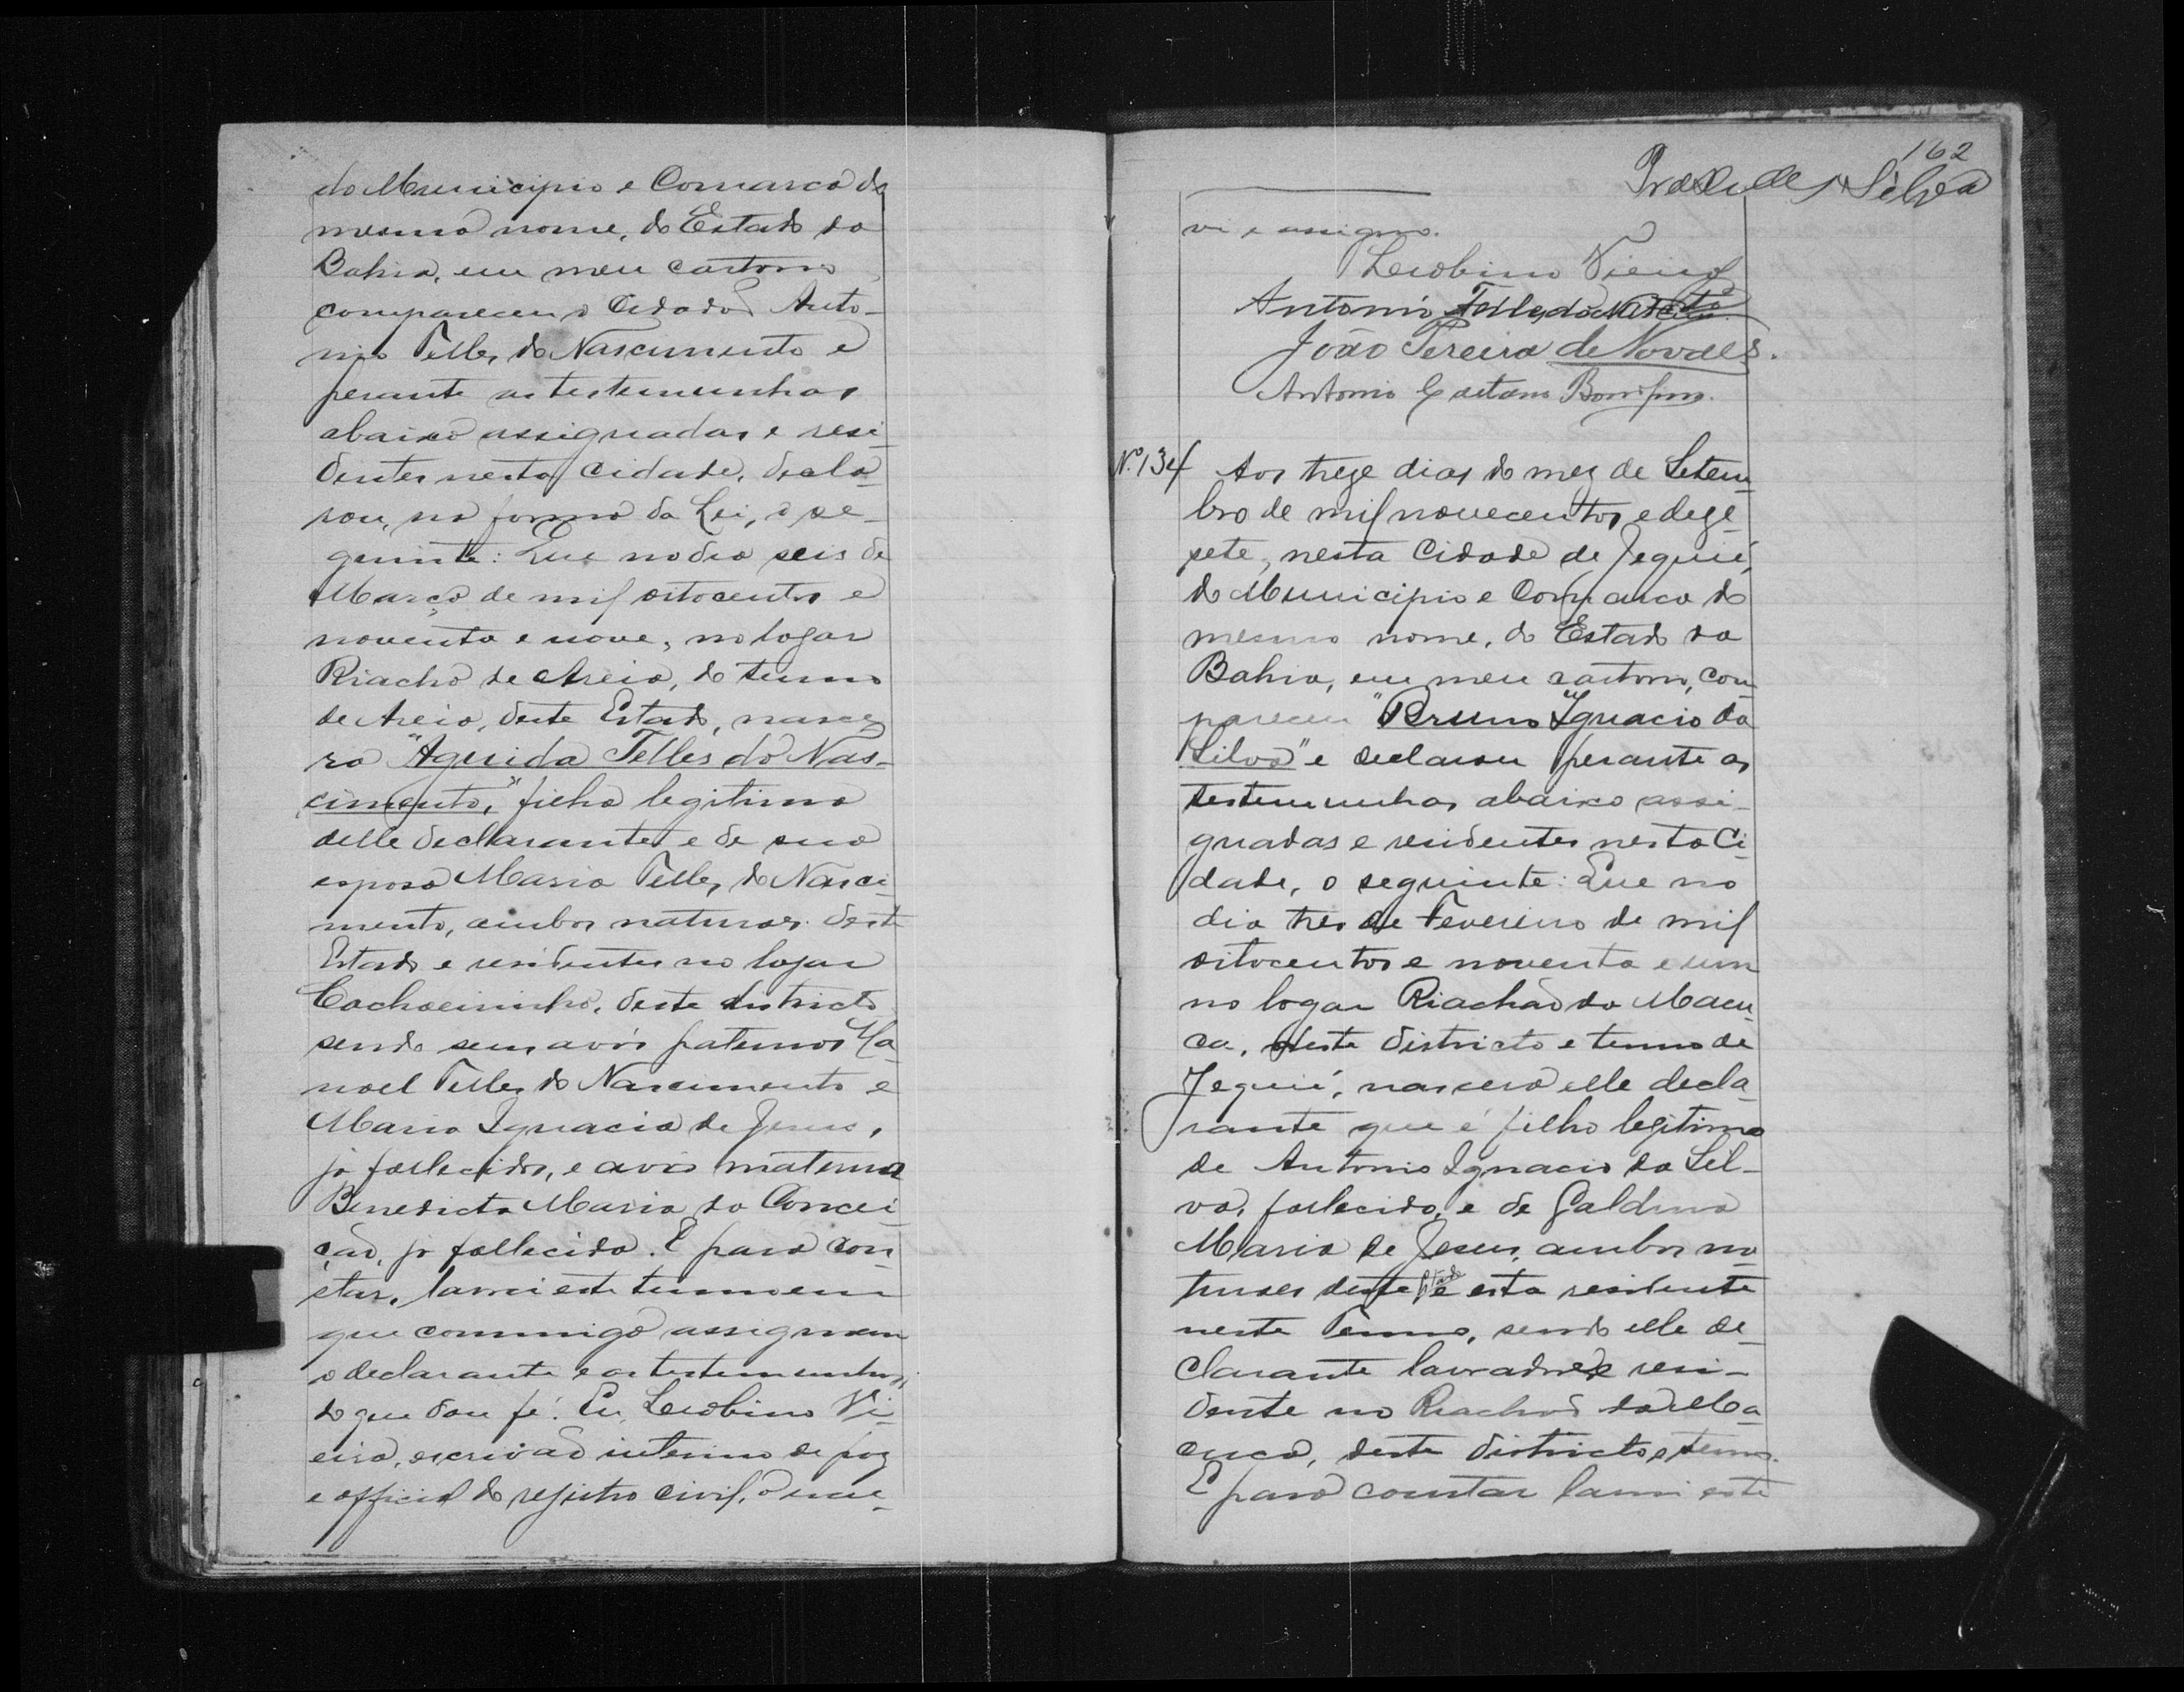 do Municipio e Comarca do
mesmo nome, do Estado da
Bahia, em meu cartorio
compareceu o Cidadão Anto-
nio Telles do Nascimento e
perante as testemunhas
abaixo assignadas e resi-
dentes nesta Cidade, decla-
rou, na forma da Lei, o se-
guinte: Que no dia seis de
Março de mil oitocentos e
noventa e nove, no logar
Riacho de Areia, do termo
de Areia, deste Estado, nasce-
ra "Aguida Telles do Nas-
cimento," filha legitima
delle declarante e de sua
esposa Maria Telles do Nasci-
mento, ambos naturaes deste
Estado e residentes no logar
Cachoeirinha, deste districto
sendo seus avós paternos Ma-
noel Telles do Nascimento e
Maria Ignacia de Jesus,
já fallecidos, e avó materna
Benedicta Maria da Concei-
ção, já fallecida. E para con-
star, lavrei este termo em
que commigo assignam
o declarante e as testemunhas,
do que dou fé. Eu, Leobino Vi-
eira, escrivão interino de paz
e official do registro civil, o escre-
162
Silva
vi e assigno.
Leobino Vieira
Antonio Telles do Nascto
João Pereira de Novaes.
Antonio Caetano Bomfim.
Nº 134 Aos treze dias do mez de Setem-
bro de mil novecentos e deze-
sete, nesta Cidade de Jequié,
do Municipio e Comarca do
mesmo nome, do Estado da
Bahia, em meu cartorio, com-
pareceu "Bruno Ignacio da
Silva" e declarou perante as
testemunhas abaixo assi-
gnadas e residentes nesta Ci-
dade, o seguinte: Que no
dia tres de Fevereiro de mil
oitocentos e noventa e um
no logar Riachão da Macu-
ca, deste districto e termo de
Jequié, nascera elle decla-
rante que é filho legitimo
de Antonio Ignacio da Sil-
va, fallecido, e de Galdina
Maria de Jesus, ambos na-
turaes deste Estado e esta residente
neste Termo, sendo elle de-
clarante lavrador e resi-
dente no Riachão da Ma-
cuca, deste districto e termo.
E para constar lavrei este